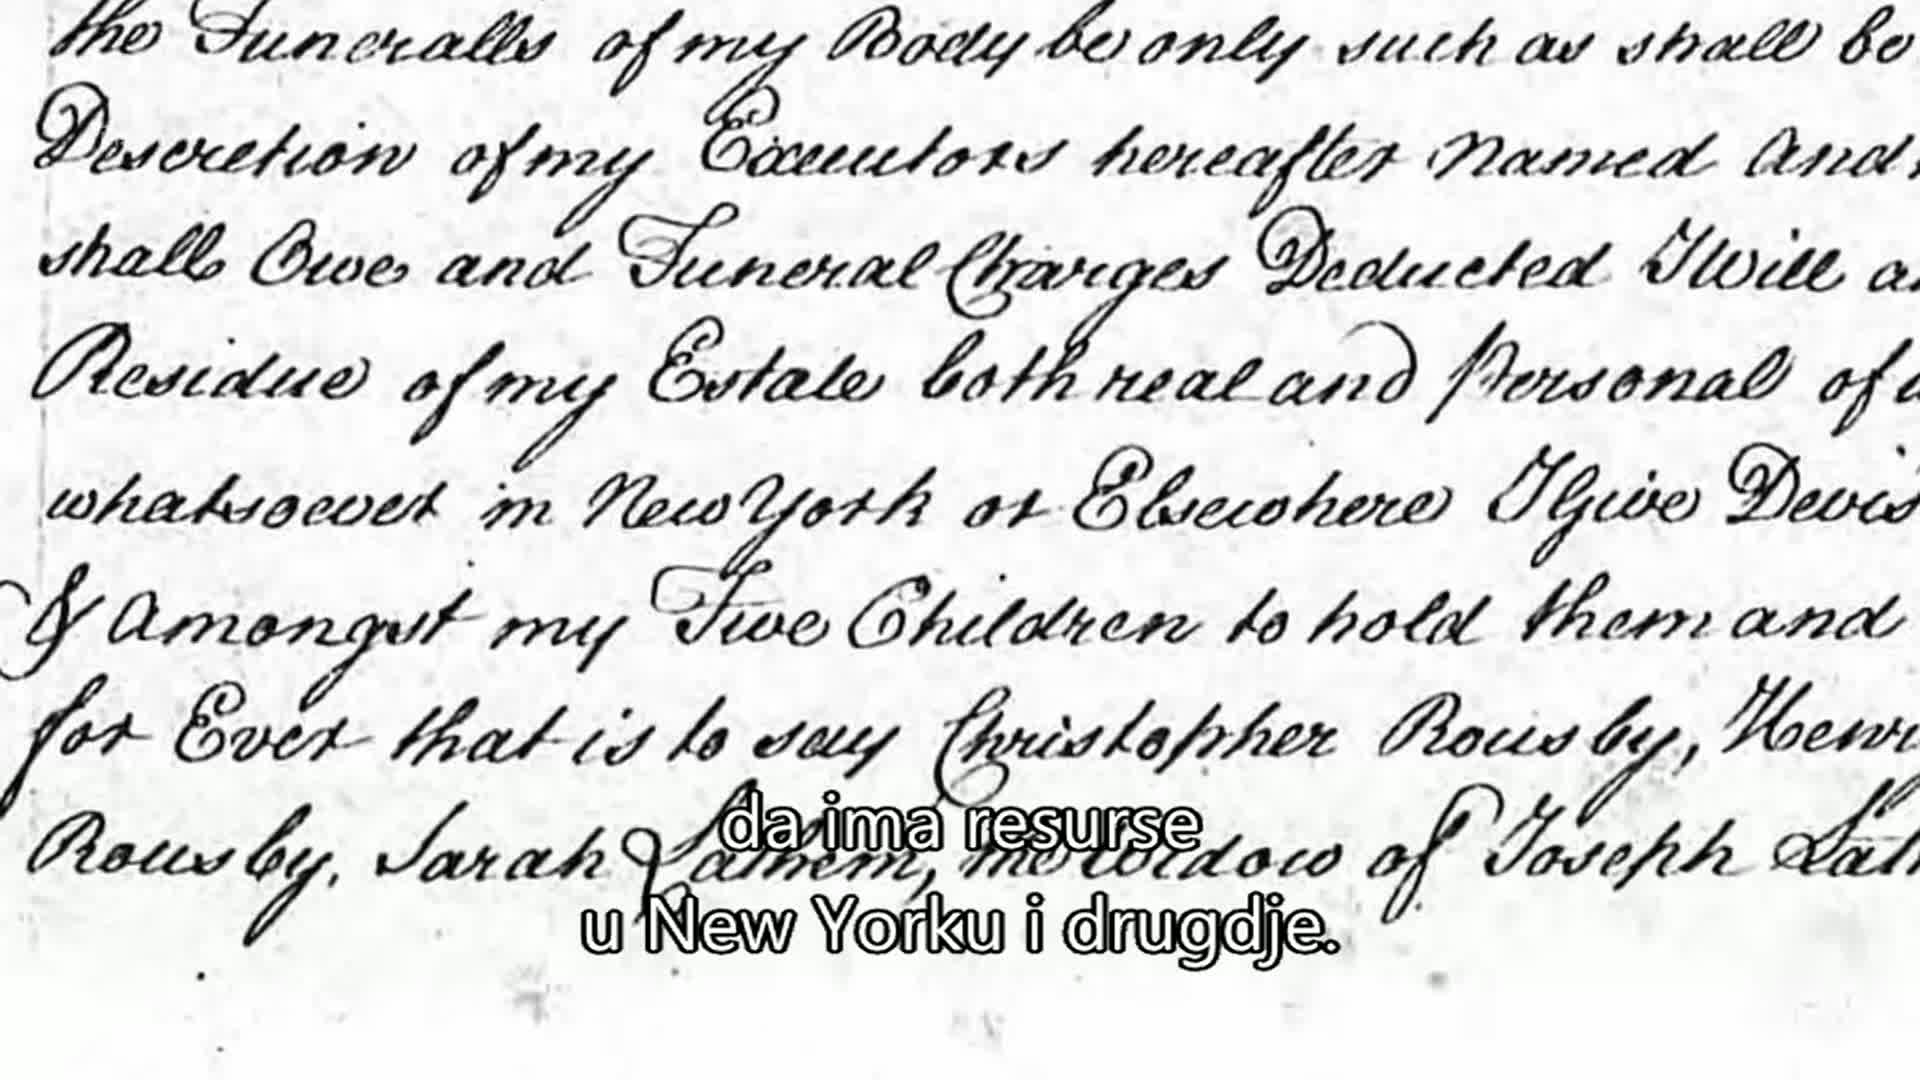 the Funeralls of my Body be only such as shall be
Descretion of my Executors hereafter Named and
shall Owe and Funeral Charges Deducted I Will
Residue of my Estate both real and Personal of
whatsoever in New York or Elsewhere I Give
& Amongst my Five Children to hold them and
for Ever that is to say Christopher Rousby,
Rousby, Sarah Lathem, the Widow of Joseph
da ima resurse
u New Yorku i drugdje.